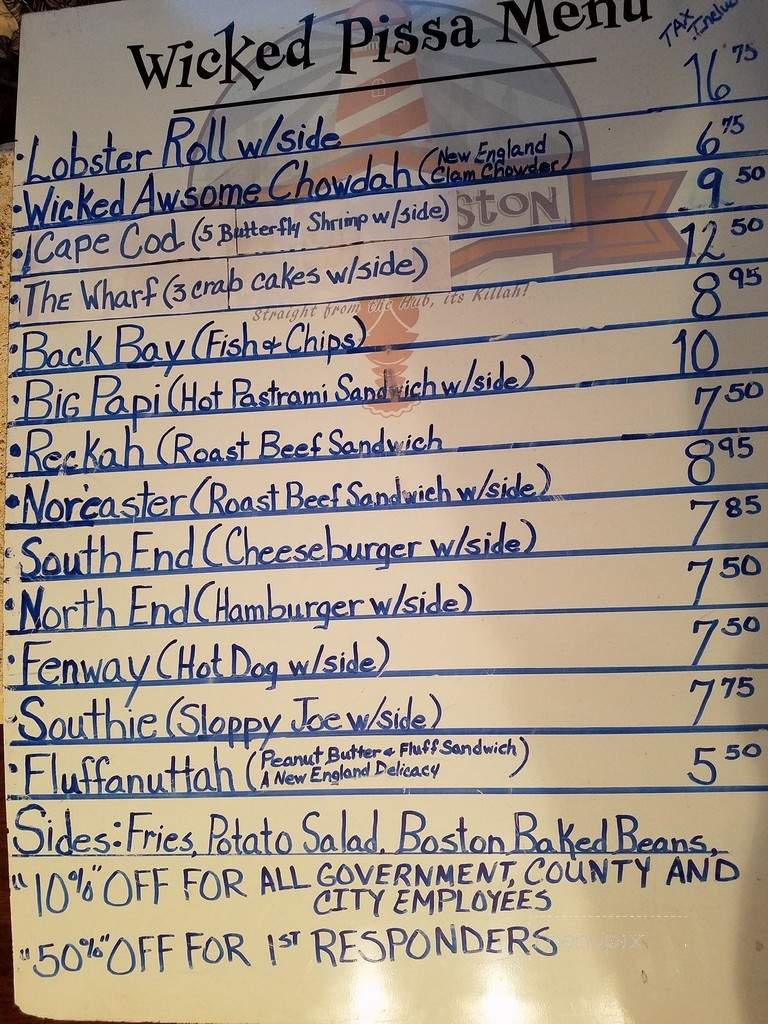 Wicked Pissa Menu
TAX
Inclu
Lobster Roll w/side 16 75
Wicked Awsome Chowdah (New England Clam Chowder) 6 75
Cape Cod (5 Butterfly Shrimp w/side) 9 50
STON
The Wharf (3 crab cakes w/side) 12 50
Straight from the Hub, its Killah!
Back Bay (Fish & Chips) 8 95
Big Papi (Hot Pastrami Sandwich w/side) 10
Reckah (Roast Beef Sandwich 7 50
Nor'easter (Roast Beef Sandwich w/side) 8 95
South End (Cheeseburger w/side) 7 85
North End (Hamburger w/side) 7 50
Fenway (Hot Dog w/side) 7 50
Southie (Sloppy Joe w/side) 7 75
Fluffanuttah (Peanut Butter & Fluff Sandwich) A New England Delicacy 5 50
Sides: Fries, Potato Salad, Boston Baked Beans,
"10%" OFF FOR ALL GOVERNMENT, COUNTY AND
CITY EMPLOYEES
"50%" OFF FOR 1ST RESPONDERS